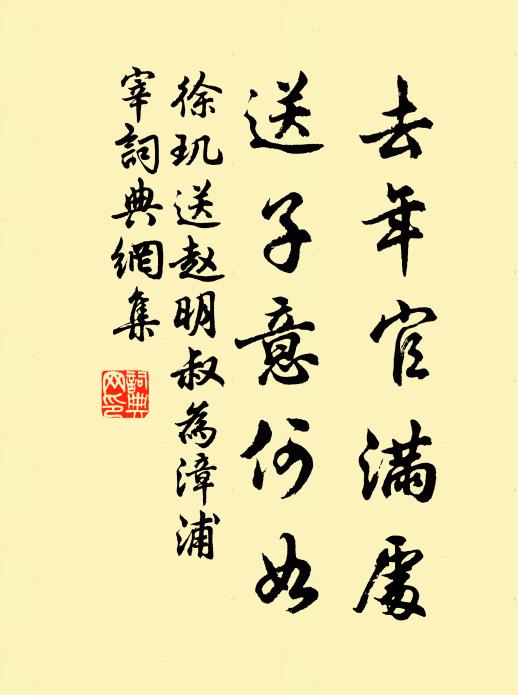 去年官滿處
送子意何如
徐玑送赵明叔為漳浦
宰詞典網集
詞典
网印